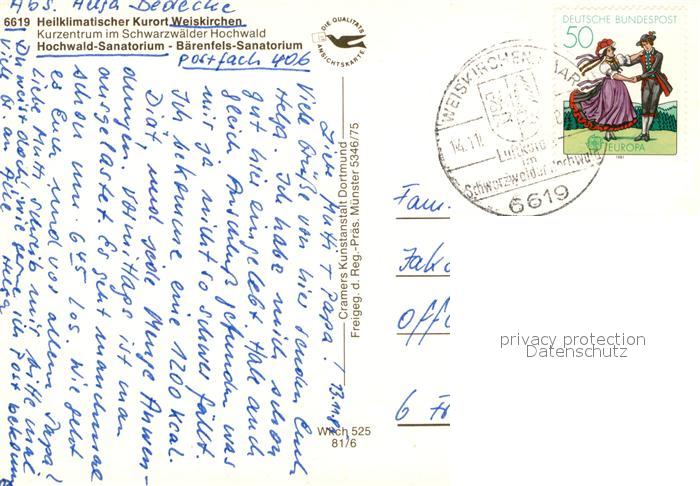 Abs. Helga Dedecke
6619 Heilklimatischer Kurort Weiskirchen
Kurzentrum im Schwarzwälder Hochwald
Hochwald-Sanatorium - Bärenfels-Sanatorium
Postfach 406
DIE QUALIT�(AETS)
ANSICHTSKARTE
DEUTSCHE BUNDESPOST
50
EUROPA
1981
WEISKIRCHEN, SAAR
14.11
Luftkurort
im
Schwarzwälder Hochwald
6619
13.11.81
Liebe Mutti + Papa!
Viele Grüße von hier senden Euch
Helga. Ich habe mich schon
gut hier eingelebt. Habe auch
gleich Anschluß gefunden was
mir ja nicht so schwer fällt.
Ich bekomme eine 1200 kcal.
Diät und jede Menge Anwen-
dungen. Vormittags ist man
ausgelastet. Es geht manchmal
schon um 6.45 los. Wie geht
es Euch und vor allem Papa?
Liebe Mutti schreib mir bitte mal
Du weißt doch, wie gerne ich Post bekomme
Viele Gr. an Alle Helga
Cramers Kunstanstalt Dortmund
Freigeg. d. Reg.-Präs. Münster 5346/75
Wkch 525
81/6
Fam.
Jak
Offe
6 Fr
privacy protection
Datenschutz